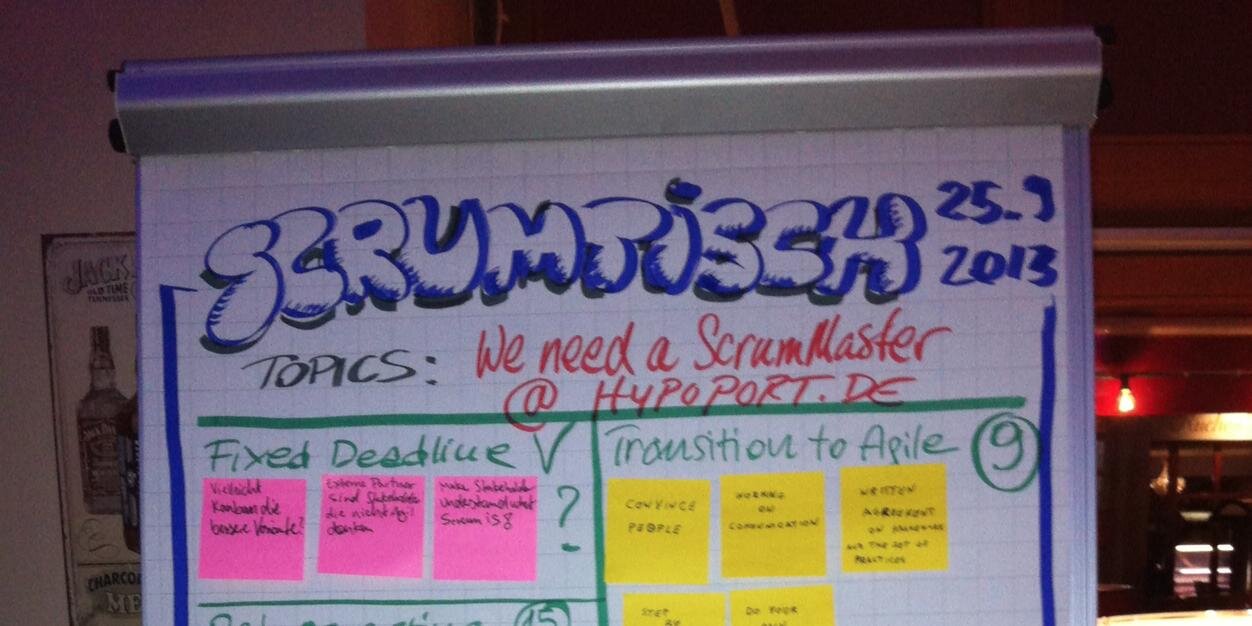 SCRUMTISCH 25.9
2013
TOPICS: We need a ScrumMaster
@ HYPOPORT.DE
Fixed Deadline V
Vielleicht
Kanban die
bessere Variante?
Externe Partner
sind Stakeholder
die nicht Agil
denken
Make Stakeholder
understand what
Scrum is?
?
Transition to Agile 9
CONVINCE
PEOPLE
WORKING
ON
COMMUNICATION
WRITTEN
AGREEMENT
ON
THE SET OF
PRACTICES
15
STEP
BY
DO YOUR
JACK
OLD TIME
TENNESSEE
CHARCO
ME